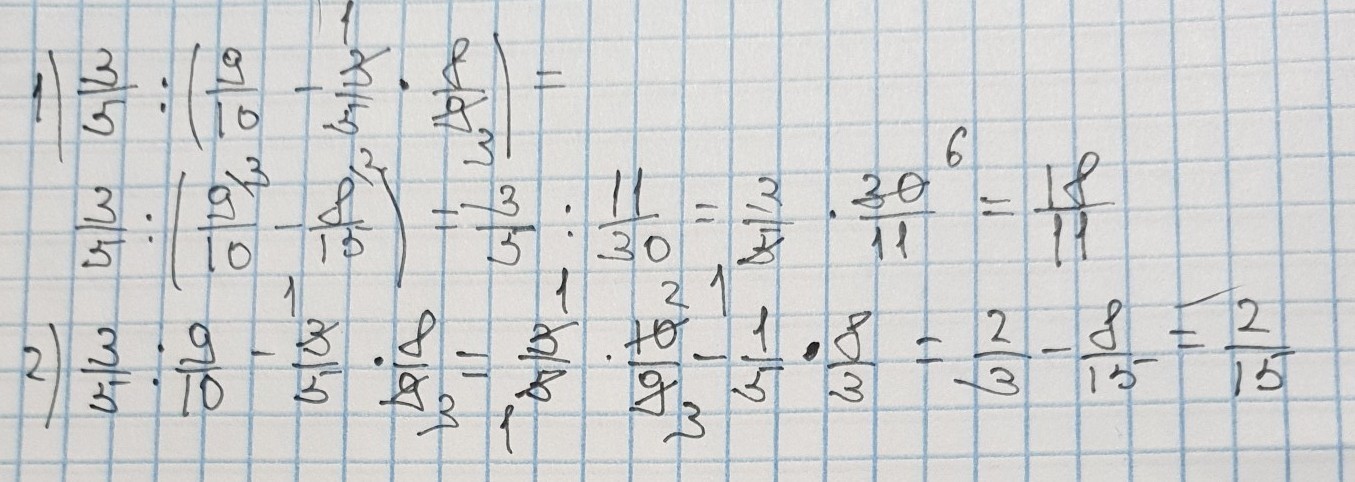 1) 3/5 : (9/10 - 3/5 · 8/9) =
3/5 : (9/10 - 8/15) = 3/5 : 11/30 = 3/5 · 30/11 = 18/11
2) 3/5 : 9/10 - 3/5 · 8/9 = 3/5 · 10/9 - 1/5 · 8/3 = 2/3 - 8/15 = 2/15